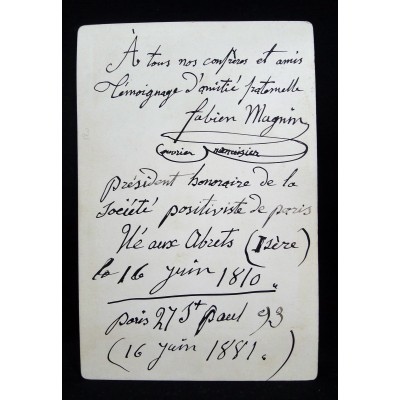 À tous nos confrères et amis
témoignage d'amitié fraternelle
fabien Magnin
(ouvrier menuisier
président honoraire de la
Société positiviste de paris
Né aux Abrets (Isère)
le 16 juin 1810.
paris 27 St paul 93
(16 juin 1881.)